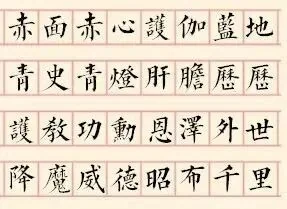 赤面赤心護伽藍地
青史青燈肝膽歷歷
護教功勳恩澤外世
降魔威德昭布千里